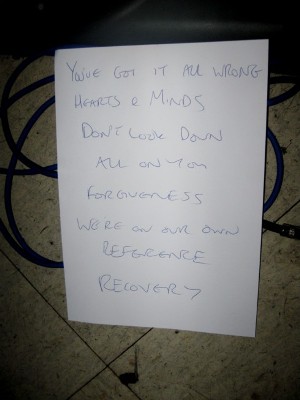 YOU'VE GOT IT ALL WRONG
HEARTS & MINDS
DON'T LOOK DOWN
ALL ON YOU
FORGIVENESS
WE'RE ON OUR OWN
REFERENCE
RECOVERY